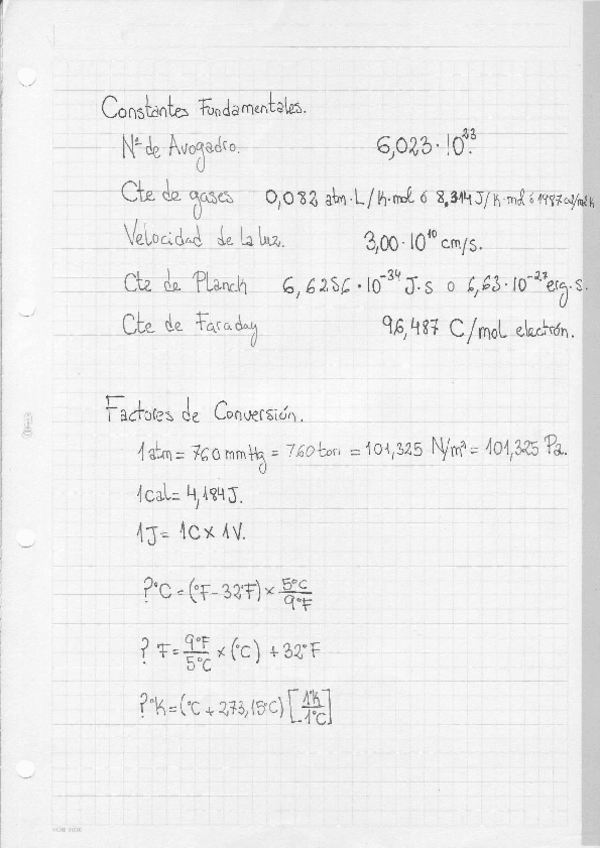 Constantes Fundamentales.
Nº de Avogadro. 6,023·10²³.
Cte de gases 0,082 atm·L/K·mol ó 8,314 J/K·mol ó 1987 cal/mol K
Velocidad de la luz. 3,00·10¹⁰ cm/s.
Cte de Planck 6,6256·10⁻³⁴ J·s o 6,63·10⁻²⁷ erg·s.
Cte de Faraday 96,487 C/mol electrón.
Factores de Conversión.
1 atm = 760 mmHg = 760 torr = 101,325 N/m² = 101,325 Pa.
1cal = 4,184 J.
1J = 1C x 1V.
?°C = (°F - 32°F) x 5°C/9°F
? F = 9°F/5°C x (°C) + 32°F
?°K = (°C + 273,15°C) [1°K/1°C]